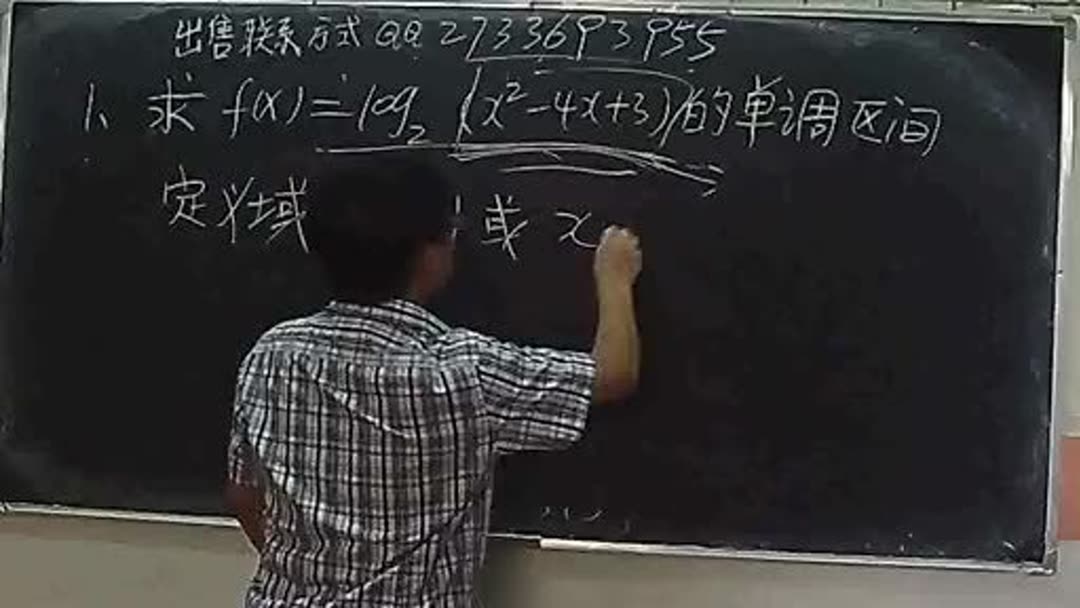 出售联系方式QQ 2733693955
1、求 f(x)=log₂(x²-4x+3)的单调区间
定义域 1或 x